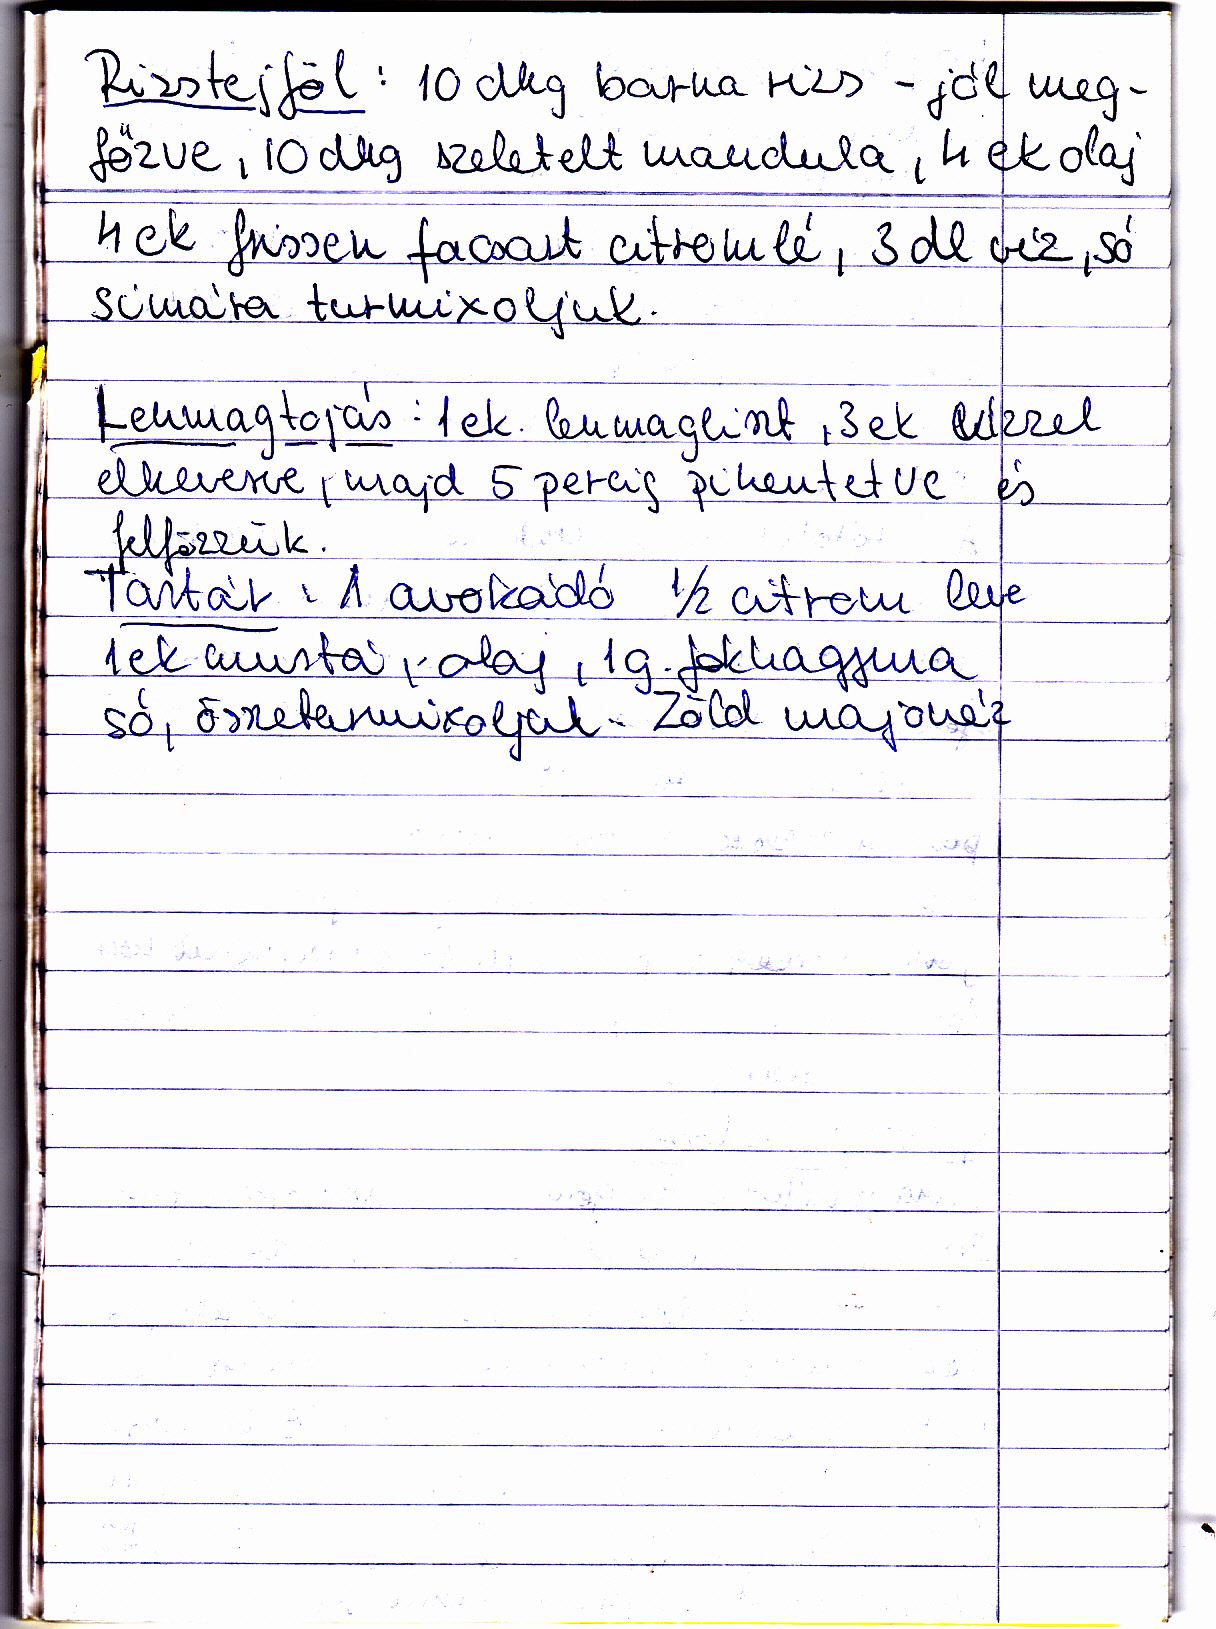 Rizstejföl: 10 dkg barna rizs - jól meg-
főzve, 10 dkg szeletelt mandula, 4 ek olaj
4 ek frissen facsart citromlé, 3 dl víz, só
simára turmixoljuk.
Lenmagtojás: 1 ek. lenmagliszt, 3 ek vízzel
elkeverve, majd 5 percig pihentetve és
felfőzzük.
Tartár: 1 avokádó 1/2 citrom leve
1 ek mustá, olaj, 1 g. fokhagyma
só, összeturmixoljuk - Zöld majonéz